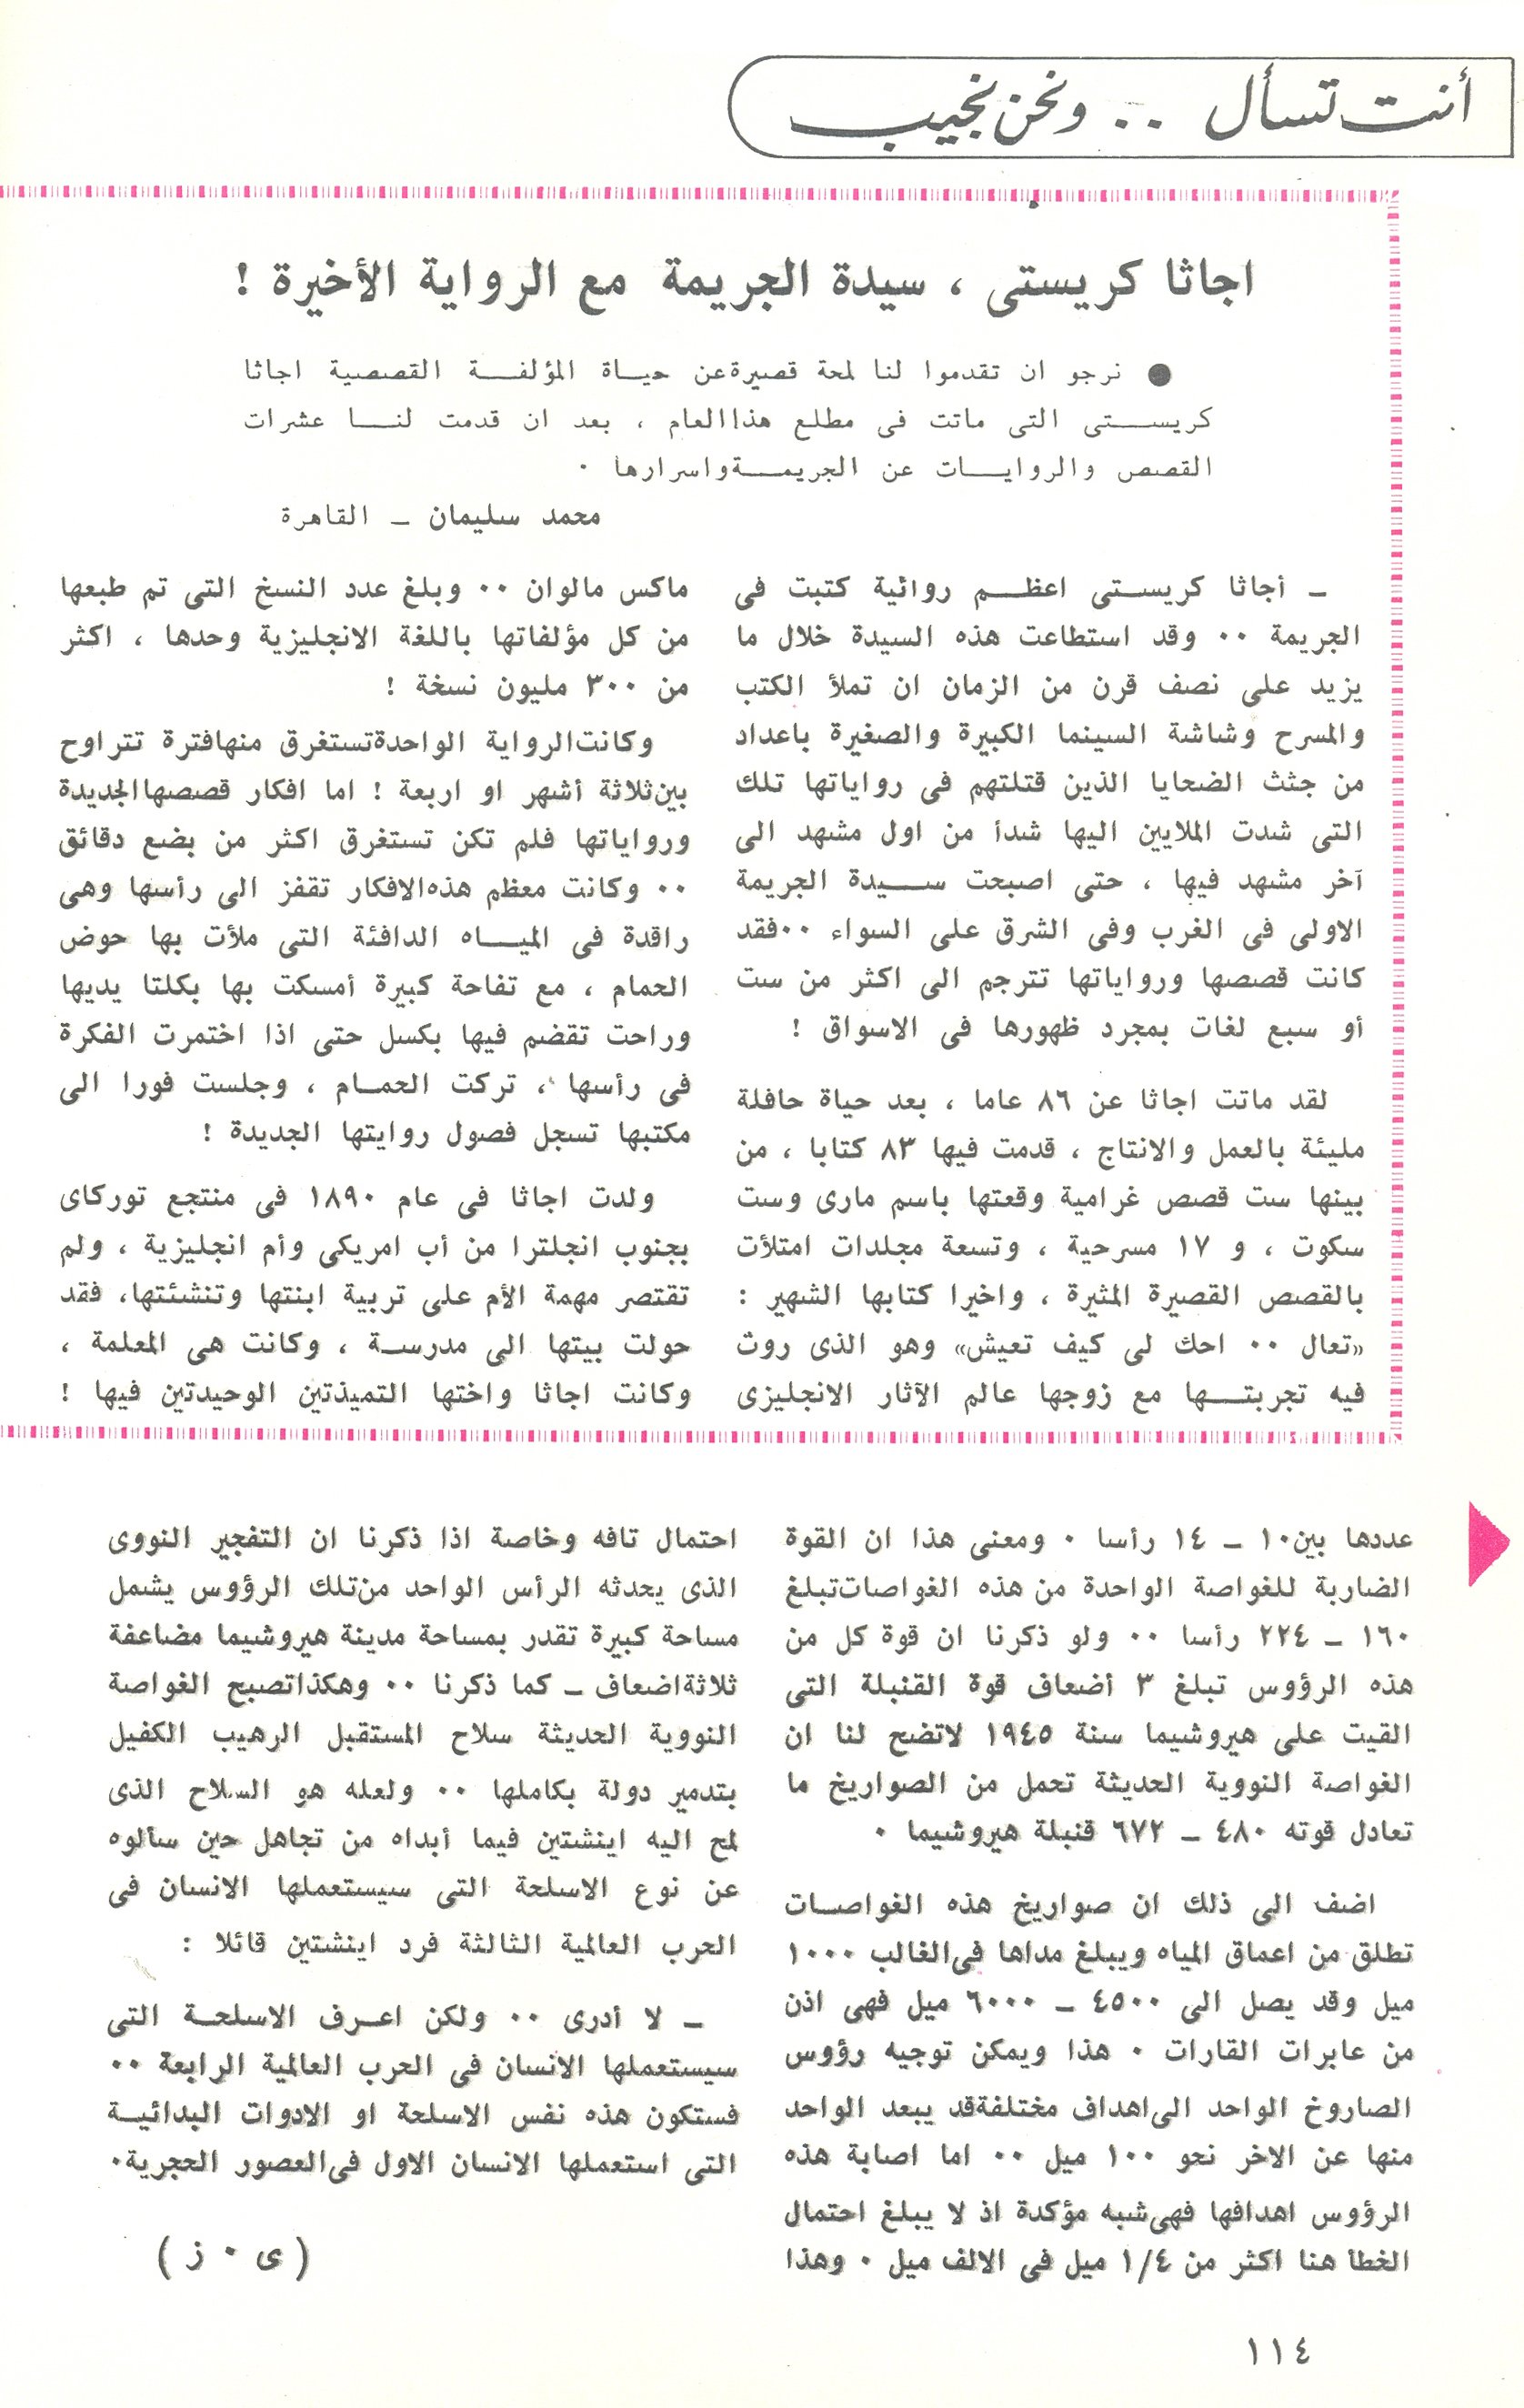 أنت تسأل .. ونحن نجيب
اجاثا كريستى ، سيدة الجريمة مع الرواية الأخيرة !
● نرجو ان تقدموا لنا لمحة قصيرة عن حيــاة المؤلفــــة القصصية اجاثا
كريســــتى التى ماتت فى مطلع هذا العام ، بعد ان قدمت لنــــا عشرات
القصص والروايــات عن الجريمــة واسرارها ٠
محمد سليمان ـ القاهرة
ـ أجاثا كريســتى اعظــم روائية كتبت فى
الجريمة ٠٠ وقد استطاعت هذه السيدة خلال ما
يزيد على نصف قرن من الزمان ان تملأ الكتب
والمسرح وشاشة السينما الكبيرة والصغيرة باعداد
من جثث الضحايا الذين قتلتهم فى رواياتها تلك
التى شدت الملايين اليها شدأ من اول مشهد الى
آخر مشهد فيها ، حتى اصبحت ســيدة الجريمة
الاولى فى الغرب وفى الشرق على السواء ٠٠ فقد
كانت قصصها ورواياتها تترجم الى اكثر من ست
أو سبع لغات بمجرد ظهورها فى الاسواق !
لقد ماتت اجاثا عن ٨٦ عاما ، بعد حياة حافلة
مليئة بالعمل والانتاج ، قدمت فيها ٨٣ كتابا ، من
بينها ست قصص غرامية وقعتها باسم مارى وست
سكوت ، و ١٧ مسرحية ، وتسعة مجلدات امتلأت
بالقصص القصيرة المثيرة ، واخيرا كتابها الشهير :
«تعال ٠٠ احك لى كيف تعيش» وهو الذى روث
فيه تجربتــها مع زوجها عالم الآثار الانجليزى
ماكس مالوان ٠٠ وبلغ عدد النسخ التى تم طبعها
من كل مؤلفاتها باللغة الانجليزية وحدها ، اكثر
من ٣٠٠ مليون نسخة !
وكانت الرواية الواحدة تستغرق منها فترة تتراوح
بين ثلاثة أشهر او اربعة ! اما افكار قصصها الجديدة
ورواياتها فلم تكن تستغرق اكثر من بضع دقائق
٠٠ وكانت معظم هذه الافكار تقفز الى رأسها وهى
راقدة فى الميــاه الدافئة التى ملأت بها حوض
الحمام ، مع تفاحة كبيرة أمسكت بها بكلتا يديها
وراحت تقضم فيها بكسل حتى اذا اختمرت الفكرة
فى رأسها ، تركت الحمــام ، وجلست فورا الى
مكتبها تسجل فصول روايتها الجديدة !
ولدت اجاثا فى عام ١٨٩٠ فى منتجع توركاى
بجنوب انجلترا من أب امريكى وأم انجليزية ، ولم
تقتصر مهمة الأم على تربية ابنتها وتنشئتها، فقد
حولت بيتها الى مدرســة ، وكانت هى المعلمة ،
وكانت اجاثا واختها التميذتين الوحيدتين فيها !
عددها بين ١٠ ـ ١٤ رأسا ٠ ومعنى هذا ان القوة
الضاربة للغواصة الواحدة من هذه الغواصات تبلغ
١٦٠ ـ ٢٢٤ رأسا ٠٠ ولو ذكرنا ان قوة كل من
هذه الرؤوس تبلغ ٣ أضعاف قوة القنبلة التى
القيت على هيروشيما سنة ١٩٤٥ لاتضح لنا ان
الغواصة النووية الحديثة تحمل من الصواريخ ما
تعادل قوته ٤٨٠ ـ ٦٧٢ قنبلة هيروشيما ٠
اضف الى ذلك ان صواريخ هذه الغواصــات
تطلق من اعماق المياه ويبلغ مداها فى الغالب ١٠٠٠
ميل وقد يصل الى ٤٥٠٠ ـ ٦٠٠٠ ميل فهى اذن
من عابرات القارات ٠ هذا ويمكن توجيه رؤوس
الصاروخ الواحد الى اهداف مختلفة قد يبعد الواحد
منها عن الاخر نحو ١٠٠ ميل ٠٠ اما اصابة هذه
الرؤوس اهدافها فهى شبه مؤكدة اذ لا يبلغ احتمال
الخطأ هنا اكثر من ١/٤ ميل فى الالف ميل ٠ وهذا
احتمال تافه وخاصة اذا ذكرنا ان التفجير النووى
الذى يحدثه الرأس الواحد من تلك الرؤوس يشمل
مساحة كبيرة تقدر بمساحة مدينة هيروشيما مضاعفة
ثلاثة اضعاف ـ كما ذكرنا ٠٠ وهكذا تصبح الغواصة
النووية الحديثة سلاح المستقبل الرهيب الكفيل
بتدمير دولة بكاملها ٠٠ ولعله هو السلاح الذى
لمح اليه اينشتين فيما أبداه من تجاهل حين سألوه
عن نوع الاسلحة التى سيستعملها الانسان فى
الحرب العالمية الثالثة فرد اينشتين قائلا :
ـ لا أدرى ٠٠ ولكن اعــرف الاسلحــة التى
سيستعملها الانسان فى الحرب العالمية الرابعة ٠٠
فستكون هذه نفس الاسلحة او الادوات البدائيــة
التى استعملها الانسان الاول فى العصور الحجرية٠
( ى ٠ ز )
١١٤